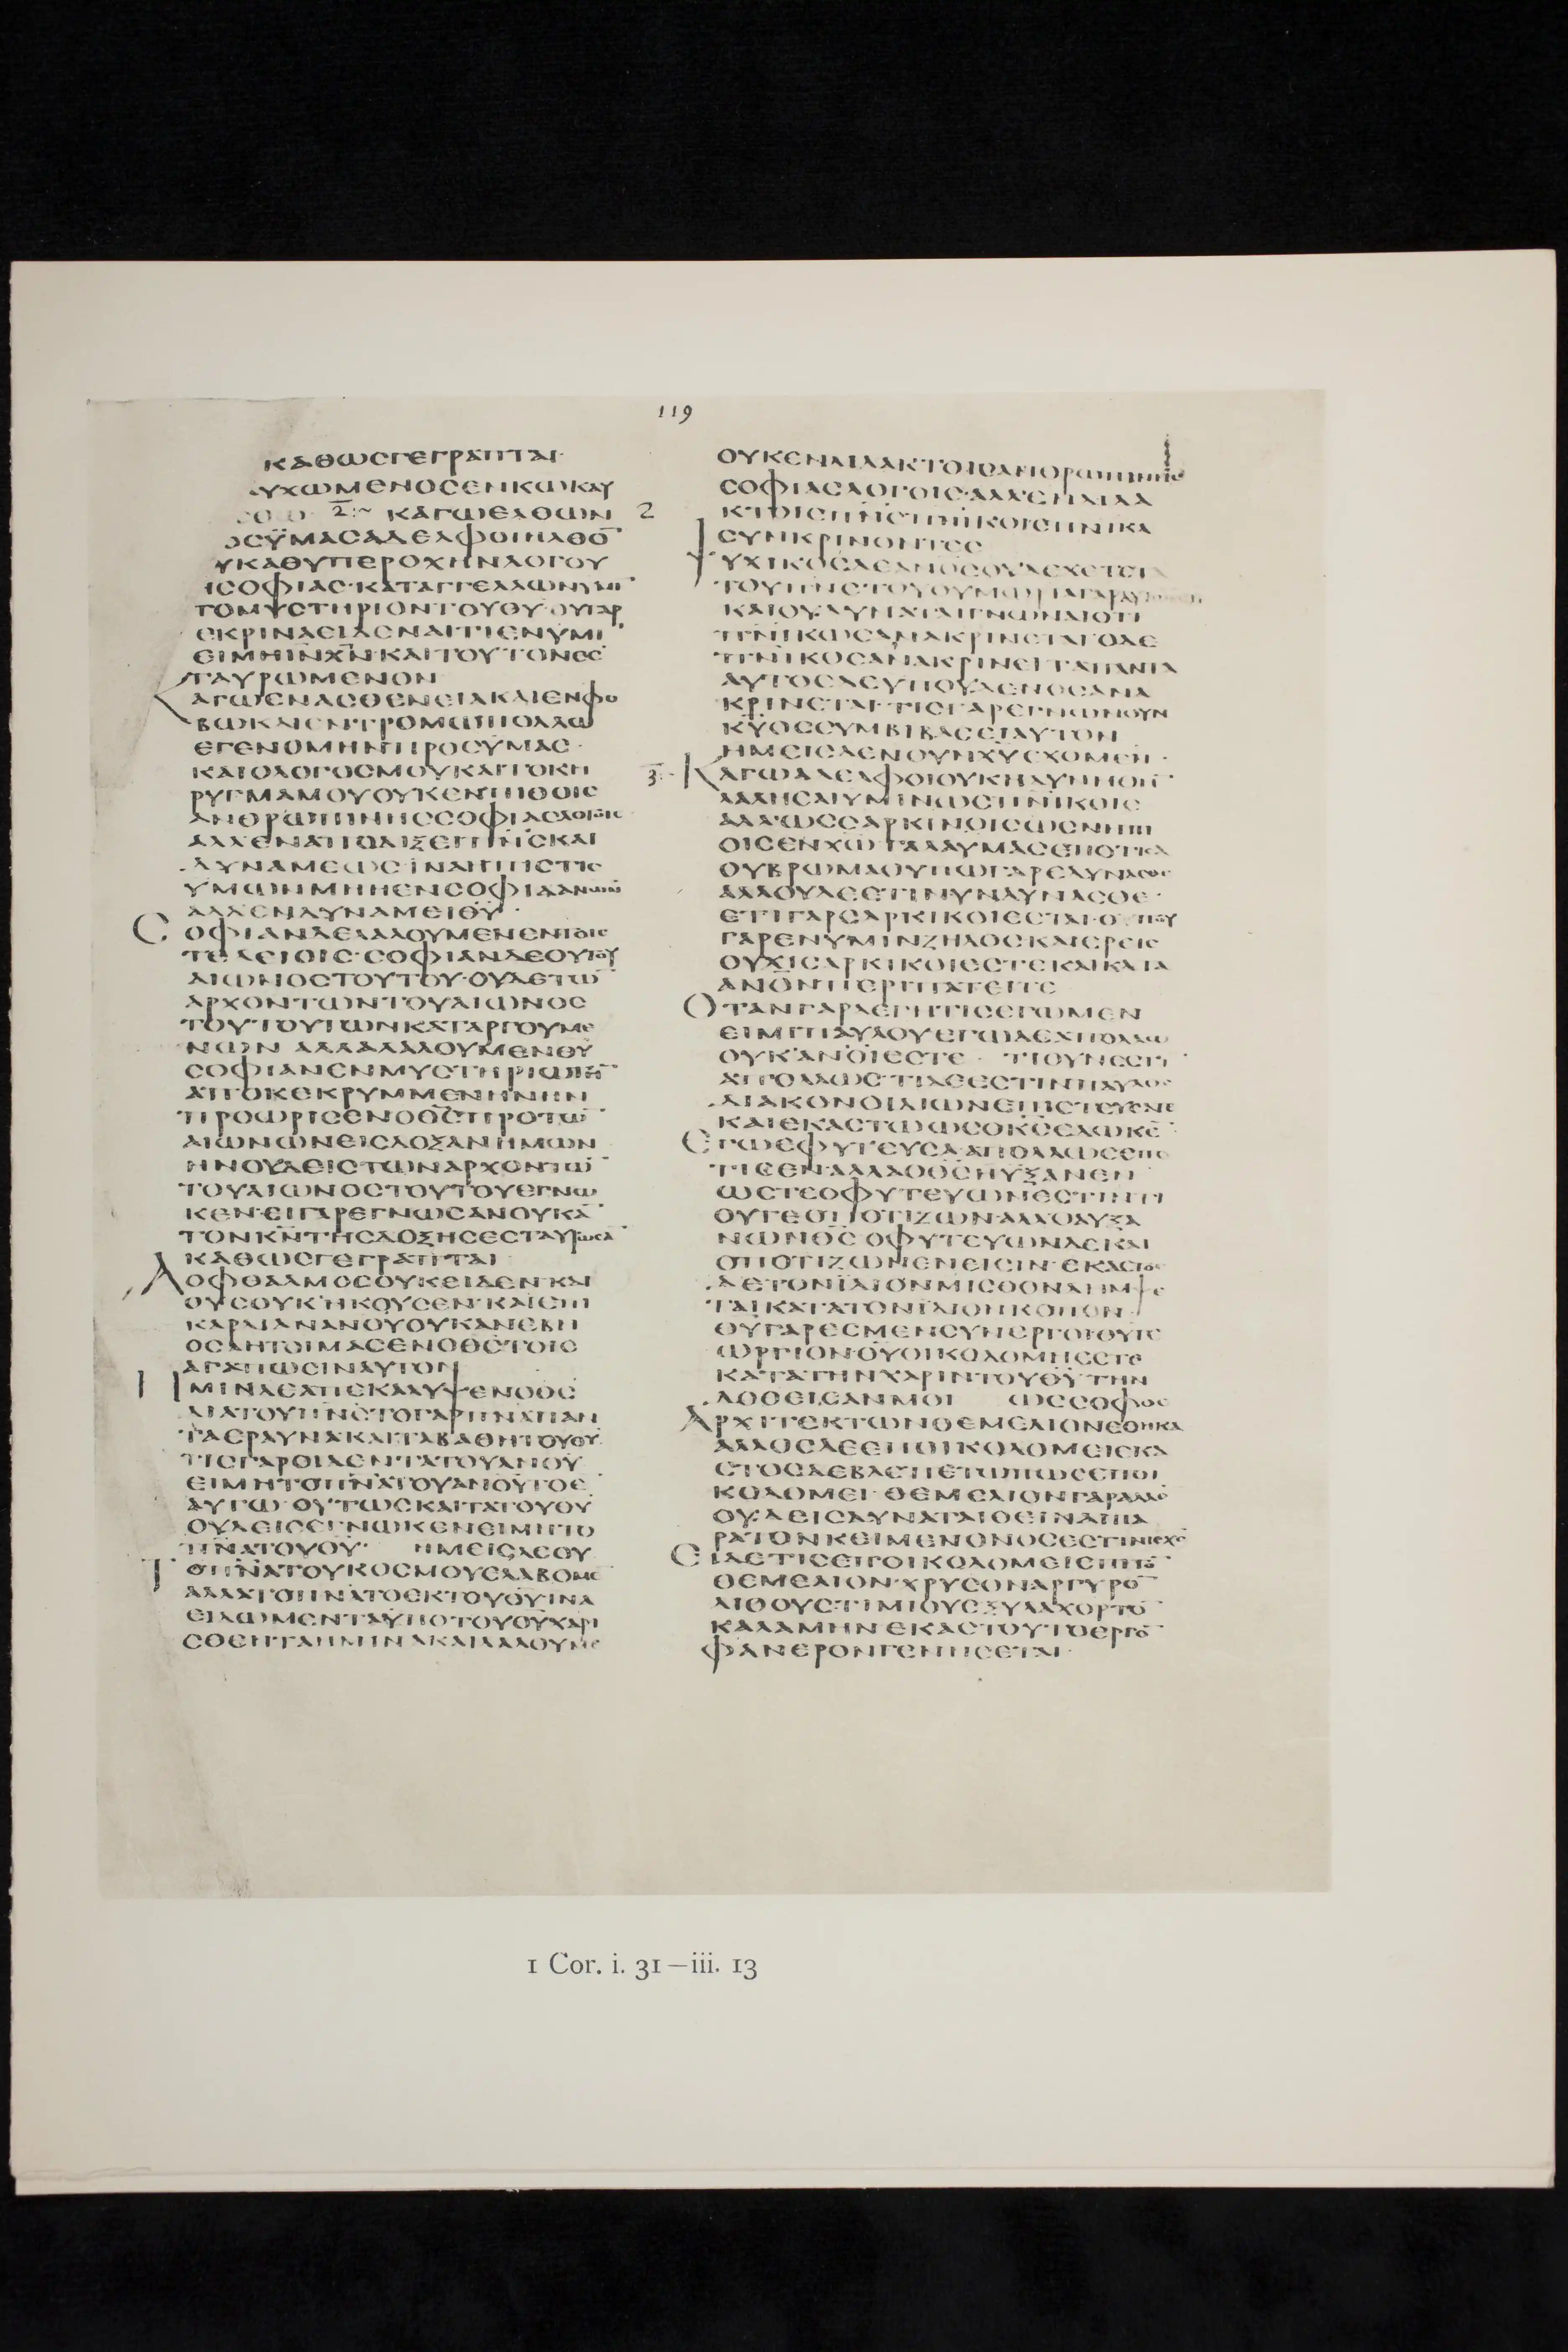 119
ΚΑΘΩϹΓΕΓΡΑΠΤΑΙ·
ΥΧΩΜΕΝΟϹΕΝΚΩΚΑΥ
2 ΚΑΓΩΕΛΘΩΝ
ΟϹΫΜΑϹΑΔΕΛΦΟΙΗΛΘΟ̅
ΥΚΑΘΥΠΕΡΟΧΗΝΛΟΓΟΥ
ΙϹΟΦΙΑϹ·ΚΑΤΑΓΓΕΛΛΩΝΥΜΙ̅
ΤΟΜΥϹΤΗΡΙΟΝΤΟΥΘΥ·ΟΥΓΑΡ
ΕΚΡΙΝΑΕΙΔΕΝΑΙΤΙΕΝΥΜΙ̅
ΕΙΜΗΙΝΧΝ·ΚΑΙΤΟΥΤΟΝΕϹ
ΤΑΥΡΩΜΕΝΟΝ
ΚΑΓΩΕΝΑϹΘΕΝΕΙΑΚΑΙΕΝΦΟ
ΒΩΚΑΙΕΝΤΡΟΜΩΠΟΛΛΩ
ΕΓΕΝΟΜΗΝΠΡΟϹΥΜΑϹ·
ΚΑΙΟΛΟΓΟϹΜΟΥΚΑΙΤΟΚΗ
ΡΥΓΜΑΜΟΥΟΥΚΕΝΠΙΘΟΙϹ
ΑΝΘΡΩΠΙΝΗϹϹΟΦΙΑϹΛΟΓΟΙϹ
ΑΛΛΕΝΑΠΟΔΙΞΕΙΠΝϹΚΑΙ
ΔΥΝΑΜΕΩϹΙΝΑΗΠΙϹΤΙϹ
ΥΜΩΝΜΗΗΕΝϹΟΦΙΑΑΝΩΝ
ΑΛΛΕΝΔΥΝΑΜΕΙΘΥ·
ϹΟΦΙΑΝΔΕΛΑΛΟΥΜΕΝΕΝΤΟΙϹ
ΤΕΛΕΙΟΙϹ·ϹΟΦΙΑΝΔΕΟΥΤΟΥ
ΑΙΩΝΟϹΤΟΥΤΟΥ·ΟΥΔΕΤΩ̅
ΑΡΧΟΝΤΩΝΤΟΥΑΙΩΝΟϹ
ΤΟΥΤΟΥΤΩΝΚΑΤΑΡΓΟΥΜΕ
ΝΩΝ ΑΛΛΑΛΑΛΟΥΜΕΝΘΥ
ϹΟΦΙΑΝΕΝΜΥϹΤΗΡΙΩΤΗ̅
ΑΠΟΚΕΚΡΥΜΜΕΝΗΝΗΝ
ΠΡΟΩΡΙϹΕΝΟΘϹΠΡΟΤΩ̅
ΑΙΩΝΩΝΕΙϹΔΟΞΑΝΗΜΩΝ
ΗΝΟΥΔΕΙϹΤΩΝΑΡΧΟΝΤΩ̅
ΤΟΥΑΙΩΝΟϹΤΟΥΤΟΥΕΓΝΩ
ΚΕΝ·ΕΙΓΑΡΕΓΝΩϹΑΝΟΥΚΑ̅
ΤΟΝΚΝΤΗϹΔΟΞΗϹΕϹΤΑΥΡΩϹΑ̅
ΚΑΘΩϹΓΕΓΡΑΠΤΑΙ
ΑΟΦΘΑΛΜΟϹΟΥΚΕΙΔΕΝ·ΚΑΙ
ΟΥϹΟΥΚΗΚΟΥϹΕΝ·ΚΑΙΕΠΙ
ΚΑΡΔΙΑΝΑΝΟΥΟΥΚΑΝΕΒΗ
ΟϹΑΗΤΟΙΜΑϹΕΝΟΘϹΤΟΙϹ
ΑΓΑΠΩϹΙΝΑΥΤΟΝ
ΗΜΙΝΔΕΑΠΕΚΑΛΥΨΕΝΟΘϹ
ΔΙΑΤΟΥΠΝϹΤΟΓΑΡΠΝΑΠΑΝ
ΤΑΕΡΑΥΝΑΚΑΙΤΑΒΑΘΗΤΟΥΘΥ
ΤΙϹΓΑΡΟΙΔΕΝΤΑΤΟΥΑΝΟΥ
ΕΙΜΗΤΟΠΝΑΤΟΥΑΝΟΥΤΟΕ̅
ΑΥΤΩ·ΟΥΤΩϹΚΑΙΤΑΤΟΥΘΥ
ΟΥΔΕΙϹΕΓΝΩΚΕΝΕΙΜΗΤΟ
ΠΝΑΤΟΥΘΥ· ΗΜΕΙϹΔΕΟΥ
ΤΟΠΝΑΤΟΥΚΟϹΜΟΥΕΛΑΒΟΜΕ̅
ΑΛΛΑΤΟΠΝΑΤΟΕΚΤΟΥΘΥ·ΙΝΑ
ΕΙΔΩΜΕΝΤΑΥΠΟΤΟΥΘΥΧΑΡΙ
ϹΘΕΝΤΑΗΜΙΝΑΚΑΙΛΑΛΟΥΜΕ̅
2
ΟΥΚΕΝΔΙΔΑΚΤΟΙϹΑΝΘΡΩΠΙΝΗϹ
ϹΟΦΙΑϹΛΟΓΟΙϹ·ΑΛΛΕΝΔΙΔΑ
ΚΤΟΙϹΠΝϹΠΝΙΚΟΙϹΠΝΙΚΑ
ϹΥΝΚΡΙΝΟΝΤΕϹ
ΨΥΧΙΚΟϹΔΕΑΝΟϹΟΥΔΕΧΕΤΑΙ
ΤΟΥΠΝϹΤΟΥΘΥΜΩΡΙΑΓΑΡΑΥ
ΚΑΙΟΥΔΥΝΑΤΑΙΓΝΩΝΑΙΟΤΙ
ΠΝΙΚΩϹΑΝΑΚΡΙΝΕΤΑΙ·ΟΔΕ
ΠΝΙΚΟϹΑΝΑΚΡΙΝΕΙΤΑΠΑΝΤΑ
ΑΥΤΟϹΔΕΥΠΟΥΔΕΝΟϹΑΝΑ
ΚΡΙΝΕΤΑΙ·ΤΙϹΓΑΡΕΓΝΩΝΟΥΝ
ΚΥΟϹϹΥΜΒΙΒΑϹΕΙΑΥΤΟΝ
ΗΜΕΙϹΔΕΝΟΥΝΧΥΕΧΟΜΕΝ·
3 ΚΑΓΩΑΔΕΛΦΟΙΟΥΚΗΔΥΝΗΘΗ̅
ΛΑΛΗϹΑΙΥΜΙΝΩϹΠΝΙΚΟΙϹ
ΑΛΛΩϹϹΑΡΚΙΝΟΙϹΩϹΝΗΠΙ
ΟΙϹΕΝΧΩΓΑΛΑΥΜΑϹΕΠΟΤΙϹΑ
ΟΥΒΡΩΜΑΟΥΠΩΓΑΡΕΔΥΝΑϹΘΕ
ΑΛΛΟΥΔΕΕΤΙΝΥΝΔΥΝΑϹΘΕ·
ΕΤΙΓΑΡϹΑΡΚΙΚΟΙΕϹΤΑΙ·ΟΠΟΥ
ΓΑΡΕΝΥΜΙΝΖΗΛΟϹΚΑΙΕΡΕΙϹ
ΟΥΧΙϹΑΡΚΙΚΟΙΕϹΤΕΚΑΙΚΑΤΑ
ΑΝΟΝΠΕΡΙΠΑΤΕΙΤΕ
ΟΤΑΝΓΑΡΛΕΓΗΤΙϹΕΓΩΜΕΝ
ΕΙΜΙΠΑΥΛΟΥΕΓΩΔΕΑΠΟΛΛΩ
ΟΥΚΑΝΟΙΕϹΤΕ· ΤΙΟΥΝΕϹΤΙ̅
ΑΠΟΛΛΩϹ·ΤΙΔΕΕϹΤΙΝΠΑΥΛΟϹ
ΔΙΑΚΟΝΟΙΔΙΩΝΕΠΙϹΤΕΥϹΑΤΕ
ΚΑΙΕΚΑϹΤΩΩϹΟΚϹΕΔΩΚΕ̅
ΕΓΩΕΦΥΤΕΥϹΑΑΠΟΛΛΩϹΕΠΟ
ΤΙϹΕΝΑΛΛΑΟΘϹΗΥΞΑΝΕΝ
ΩϹΤΕΟΦΥΤΕΥΩΝΕϹΤΙΝΤΙ
ΟΥΤΕΟΠΟΤΙΖΩΝ·ΑΛΛΟΑΥΞΑ
ΝΩΝΘϹ·ΟΦΥΤΕΥΩΝΔΕΚΑΙ
ΟΠΟΤΙΖΩΝΕΝΕΙϹΙΝ·ΕΚΑϹΤΟϹ
ΔΕΤΟΝΙΔΙΟΝΜΙϹΘΟΝΛΗΜΨΕ
ΤΑΙΚΑΤΑΤΟΝΙΔΙΟΝΚΟΠΟΝ
ΘΥΓΑΡΕϹΜΕΝϹΥΝΕΡΓΟΙΘΥΓΕ
ΩΡΓΙΟΝΘΥΟΙΚΟΔΟΜΗΕϹΤΕ
ΚΑΤΑΤΗΝΧΑΡΙΝΤΟΥΘΥΤΗΝ
ΔΟΘΕΙϹΑΝΜΟΙ ΩϹϹΟΦΟϹ
ΑΡΧΙΤΕΚΤΩΝΘΕΜΕΛΙΟΝΕΘΗΚΑ
ΑΛΛΟϹΔΕΕΠΟΙΚΟΔΟΜΕΙΕΚΑ
ϹΤΟϹΔΕΒΛΕΠΕΤΩΠΩϹΕΠΟΙ
ΚΟΔΟΜΕΙ·ΘΕΜΕΛΙΟΝΓΑΡΑΛΛΟ̅
ΟΥΔΕΙϹΔΥΝΑΤΑΙΘΕΙΝΑΙΠΑ
ΡΑΤΟΝΚΕΙΜΕΝΟΝΟϹΕϹΤΙΝΙϹΧϹ
ΕΙΔΕΤΙϹΕΠΟΙΚΟΔΟΜΕΙΕΠΙΤΟ̅
ΘΕΜΕΛΙΟΝ·ΧΡΥϹΟΝΑΡΓΥΡΟ̅
ΛΙΘΟΥϹΤΙΜΙΟΥϹΞΥΛΑΧΟΡΤΟ̅
ΚΑΛΑΜΗΝΕΚΑϹΤΟΥΤΟΕΡΓΟ̅
ΦΑΝΕΡΟΝΓΕΝΗϹΕΤΑΙ·
1 Cor. i. 31—iii. 13